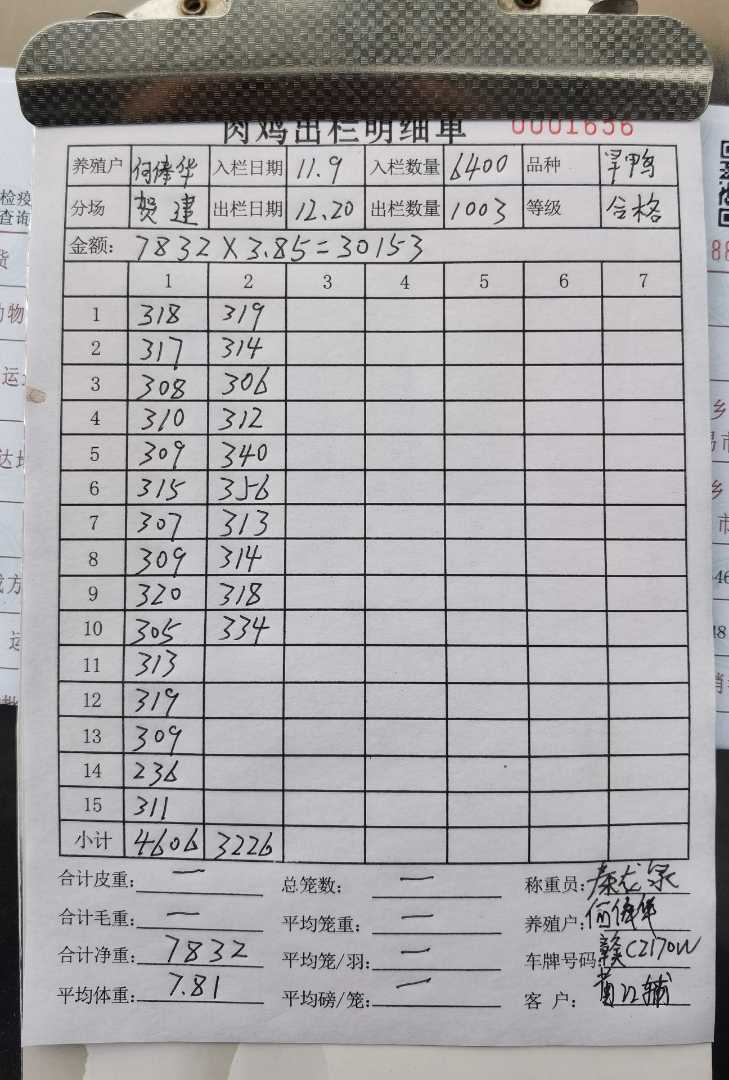 肉鸡出栏明细单 0001656
养殖户 何俸华 入栏日期 11.9 入栏数量 6400 品种 旱鸭
分场 贺建 出栏日期 12.20 出栏数量 1003 等级 合格
金额: 7832×3.85=30153
1 2 3 4 5 6 7
1 318 319
2 317 314
3 308 306
4 310 312
5 309 340
6 315 356
7 307 313
8 309 314
9 320 318
10 305 334
11 313
12 319
13 309
14 236
15 311
小计 4606 3226
合计皮重: 一 总笼数: 一 称重员:
合计毛重: 一 平均笼重: 一 养殖户: 何俸华
合计净重: 7832 平均笼/羽: 一 车牌号码: 赣C2170W
平均体重: 7.81 平均磅/笼: 一 客 户:
检疫
查询
货
动物
运
达地
方
运
88
乡
市
乡
市
46
48